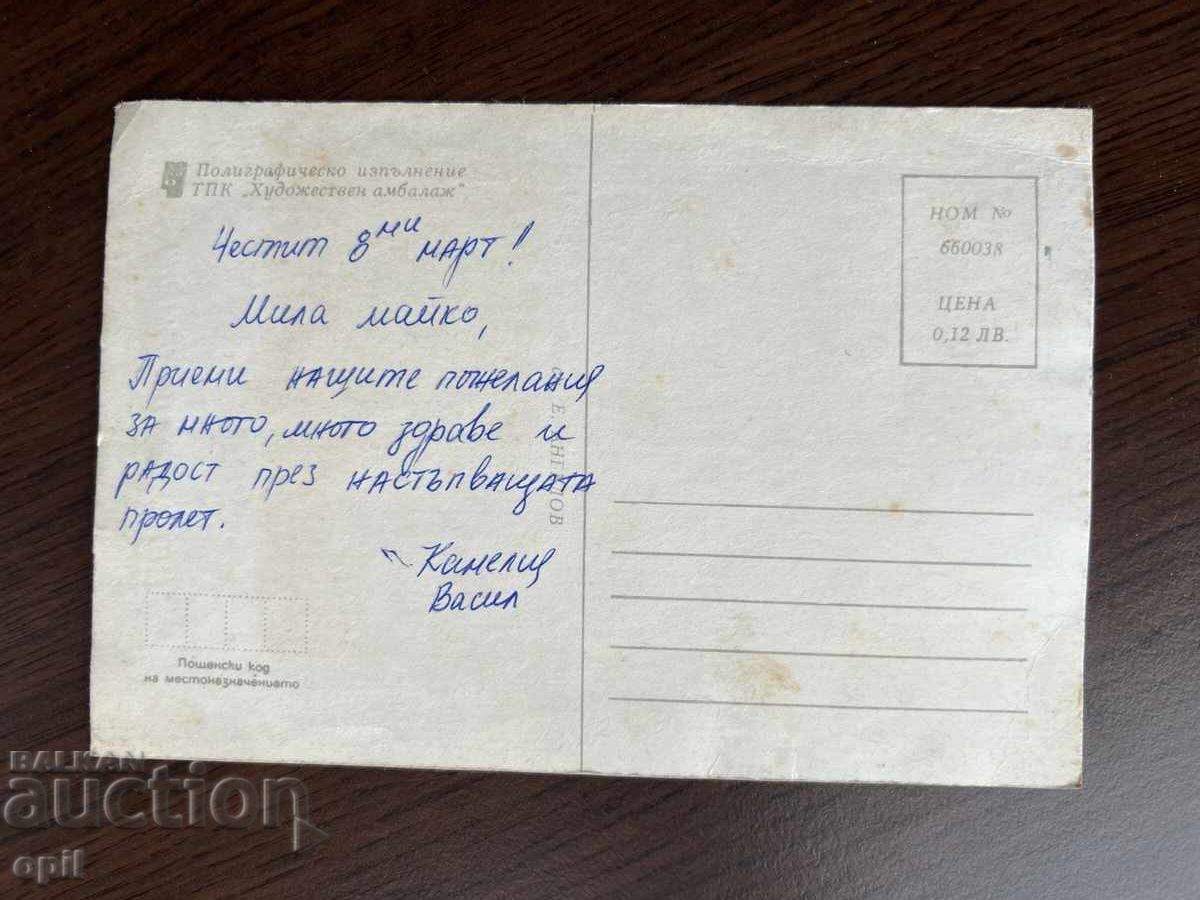 Полиграфическо изпълнение
ТПК „Художествен амбалаж"
Честит 8ми март!
Мила майко,
Приеми нащите пожелания
за много, много здраве и
радост през настъпващата
пролет.
Васил
Пощенски код
на местоназначението
НОМ №
660038
ЦЕНА
0,12 ЛВ.
BALKAN
auction
opil